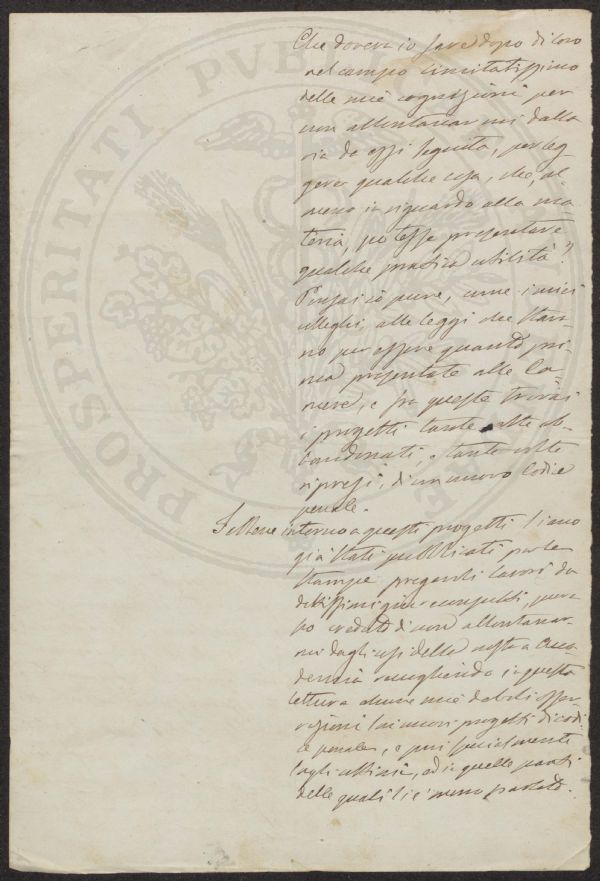 Che doveva io fare dopo di loro
nel campo limitatissimo
delle mie cognizioni per
non allontanarmi dalla
via da essi seguita, per leg-
gere qualche cosa, che, al-
meno in riguardo alla ma-
teria, potesse presentare
qualche pratica utilità?
Pensai io pure, come i miei
colleghi, alle leggi che stan-
no per essere quanto pri-
ma presentate alle Ca-
mere, e fra queste trovai
i progetti tante volte ab-
bandonati, e tante volte
ripresi, di un nuovo Codice
penale.
Sebbene intorno a questi progetti siano
già stati pubblicati per le
stampe pregevoli lavori da
dottissimi giureconsulti, pure
ho creduto di non allontanar-
mi dagli usi della nostra Acca-
demia raccogliendo in questa
lettura alcune mie deboli osser-
vazioni sui nuovi progetti di codi-
ce penale, e più specialmente
sugli ultimi, ed in quelle parti
delle quali si è meno parlato.
PROSPERITATI PUBLICAE